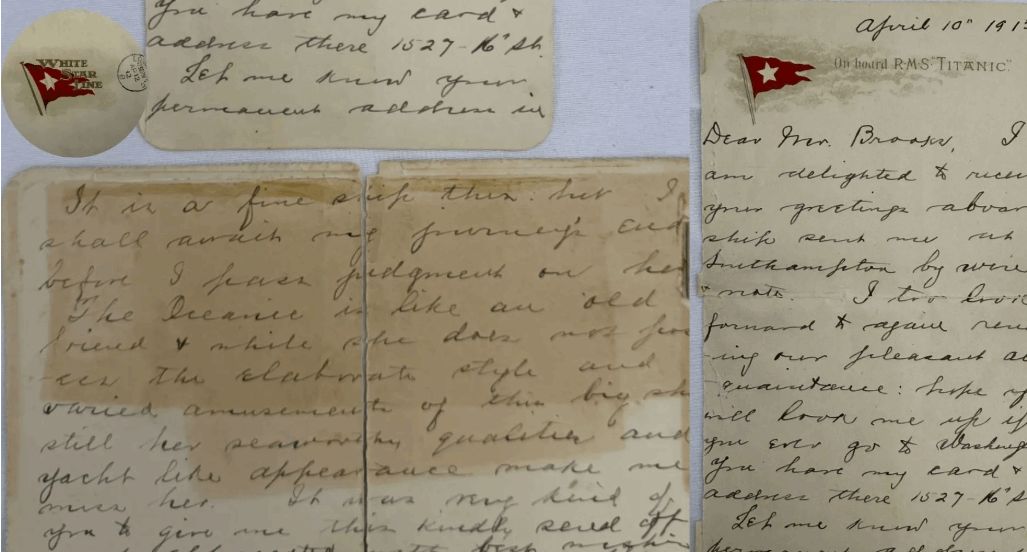 WHITE
STAR
LINE
You have my card &
address there 1527-16" St.
Let me know your
permanent address in
It is a fine ship this: but I
shall await my journey's end
before I pass judgment on her
The Oceanic is like an old
friend & while she does not pos
-ess the elaborate style and
varied amusements of this big sh
still her seaworthy qualities and
yacht like appearance make me
miss her. It was very kind of
you to give me this kindly send off
with best
April 10" 191
On board R.M.S. "TITANIC".
Dear Mr. Brooks, I
am delighted to rece
your greetings aboar
ship sent me at
Southampton by wire
& note. I too look
forward to again ren
-ing our pleasant ac
-quaintance: hope y
will look me up if
you ever go to Washing
You have my card &
address there 1527-16" S
Let me know your